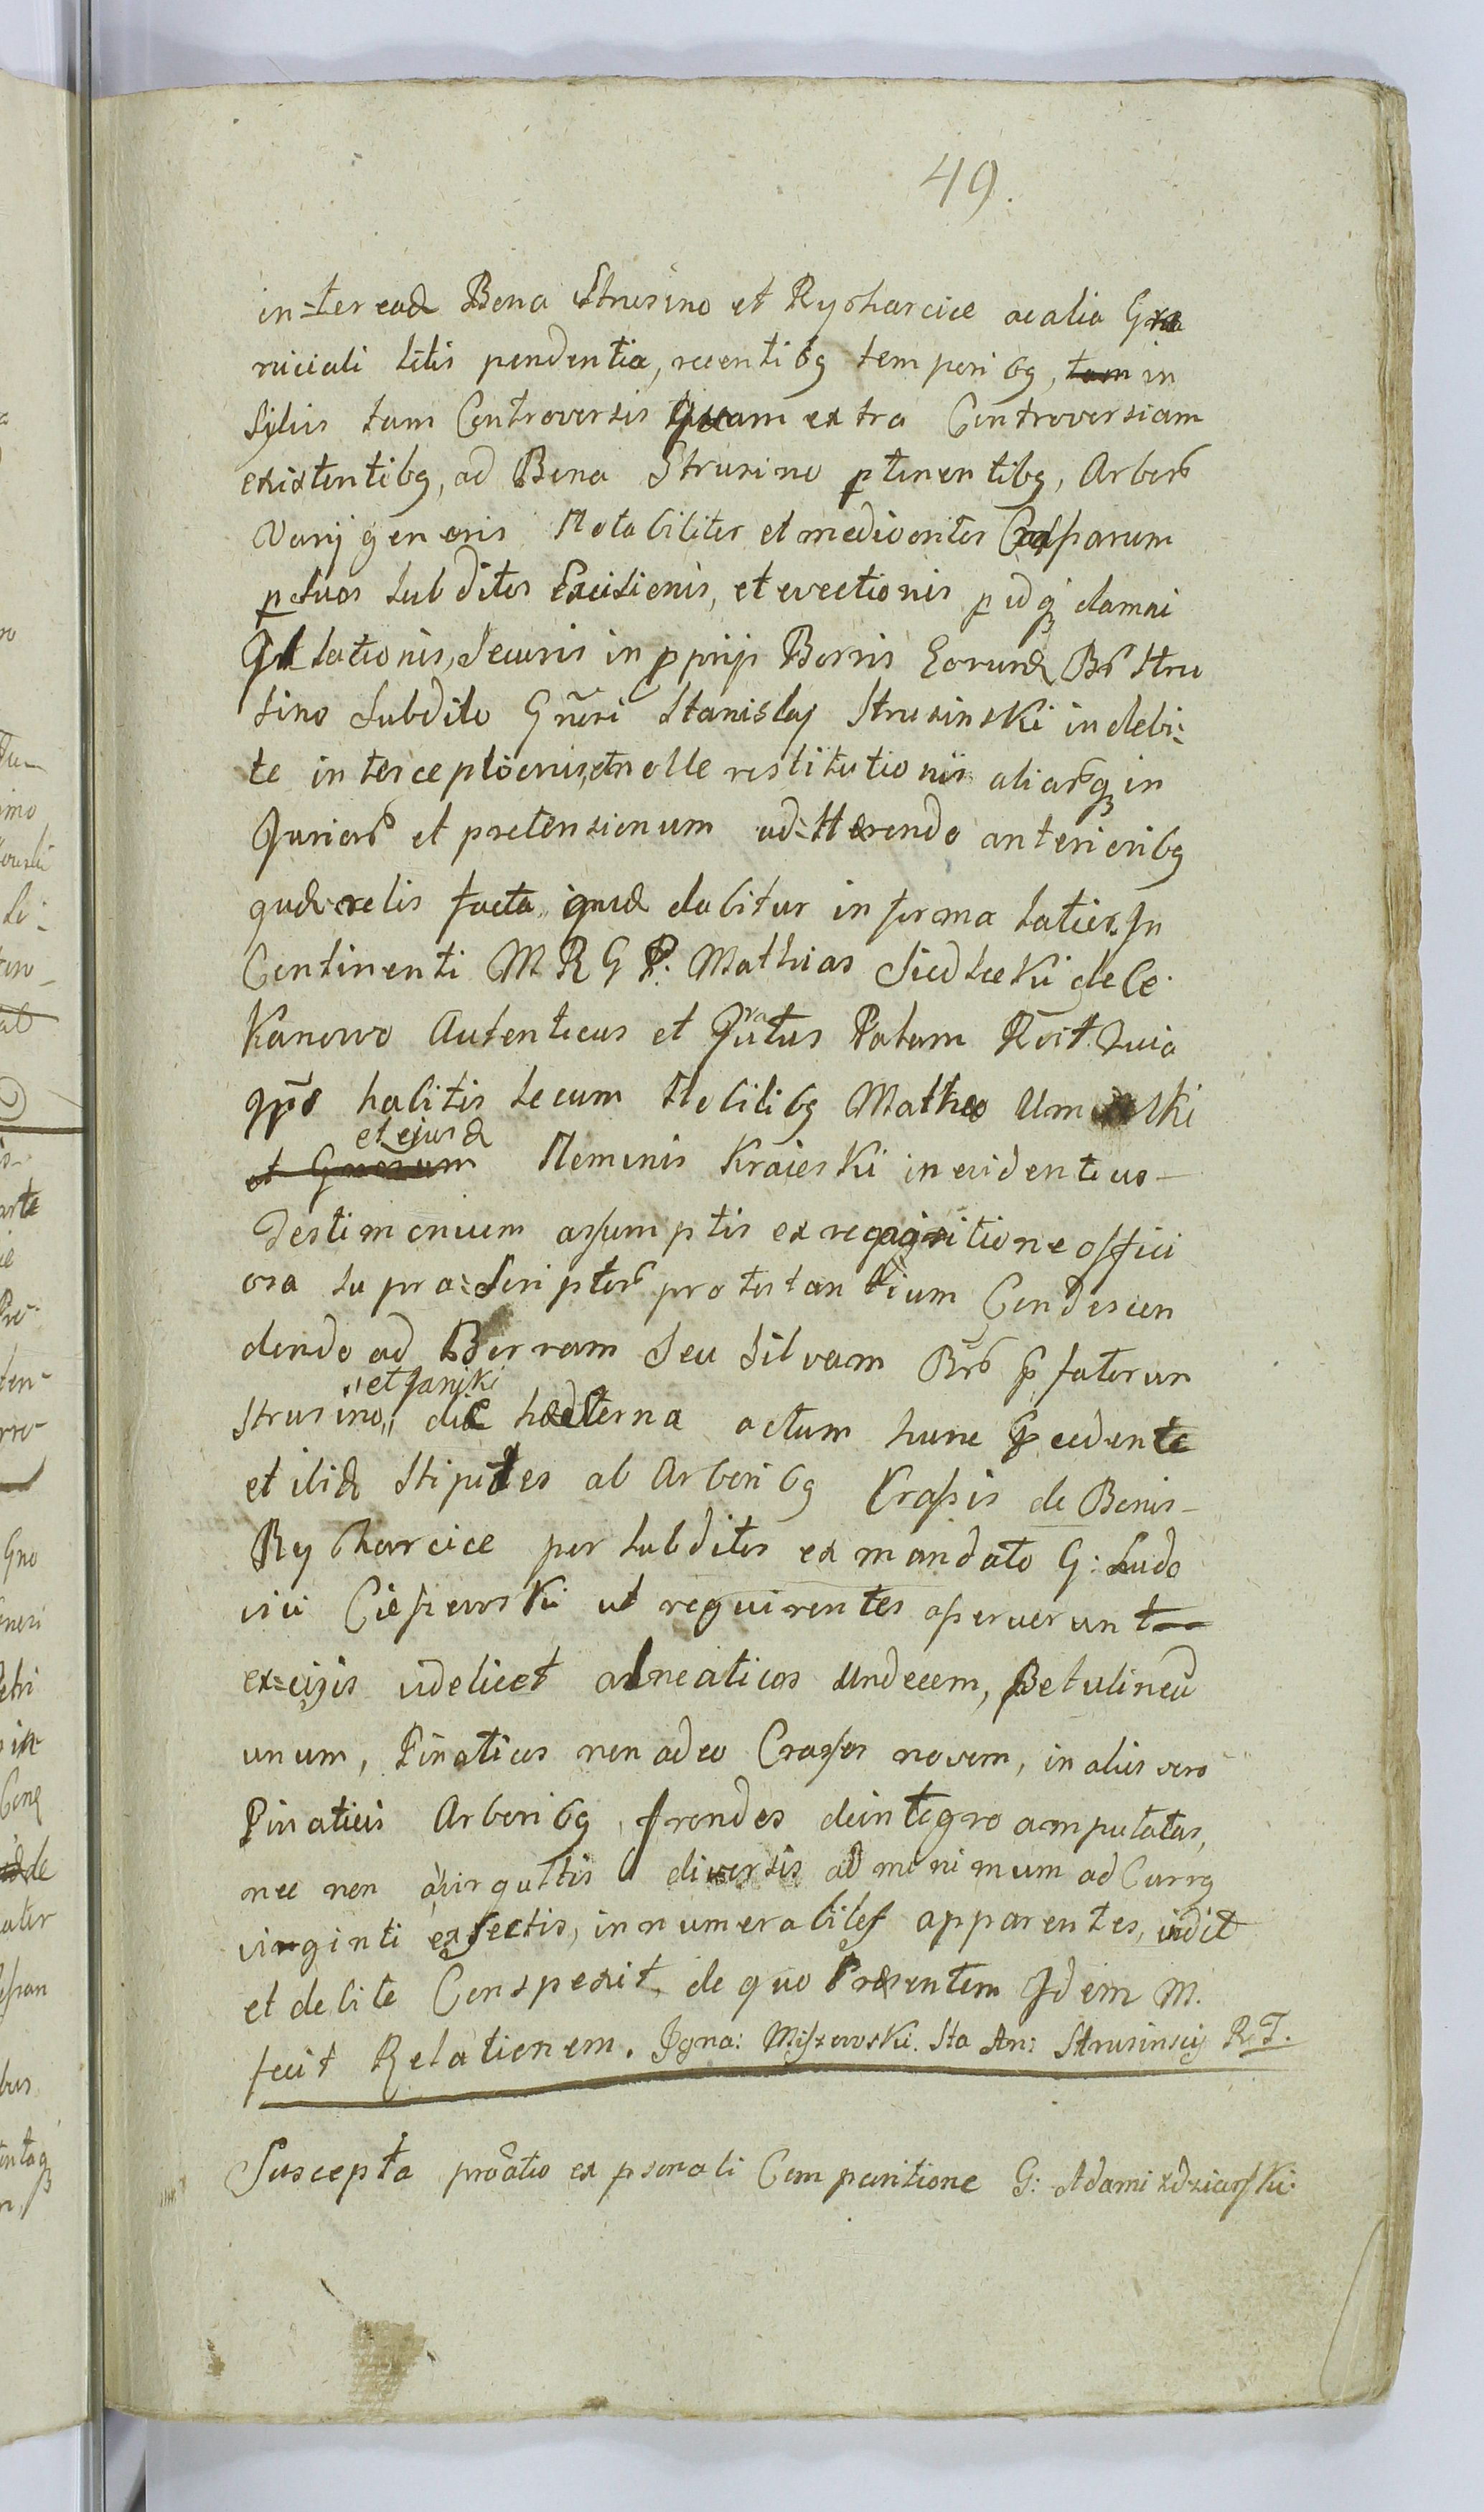 49.
in=ter ead Bona Strusino et Rycharcice ac alia Gra
niciali litis pendentia, recentibq temporibq, in
Sylvis tam Controversis quam extra Controversiam
existentibq, ad Bona Strusino ptinentibq, Arborū
Varij generis Notabiliter et mediocriter Crassarum
p suos subditos Excisionis, et evectionis p idq damni
Illationis, Securis in pprijs Borris Eorund Brū Stru
sino Subdito Gnēri Stanislaj Strusinski indebi=
te interceptionis, et nolle restitutionis aliarūq in
Juriarū et pretensionum ad=Hærendo anterioribq
quærelis facta, quæ dabitur in forma latior. In
Continenti M R G P: Mathias Siedlecki de Ce
Kanowo Autenticus et Jurātus Palam Rēcit Quia
ipse habitis secum Nobilibq Matheo Um ski
et ejusd
Neminis Kraieski in evidentius
Testimonium assumptis ex reqisitione offici
osa supra=Scriptorū protestantium Condescen
dendo ad Borram Seu Silvam Brū p fatorum
et Janiki
Strusino,, die hæsterna actum hunc præcedente
et ibid Stipites ab Arboribq Crassis de Bonis
Rycharcice per subditos ex mandato G: Ludo
vici Ciessewski ut requirentes asseruerunt
ex=cisis videlicet alneaticos Undecem, Betulineū
unum, Pinaticos non adeo Crassos novem, in aliis vero
Pinaticis Arboribq frondes deintegro amputatas,
nec non a virgultis diversis ad minimum ad Currq
virginti exsectis, innumerabiles apparentes, vidit
et debite Conspexit, de quo Præsentem Idem M.
fecit Relationem. Igna: Miszewski. Sta An: Strusinscij R. T.
Suscepta proātio ex psonali Comparitione G: Adami Zdziarski